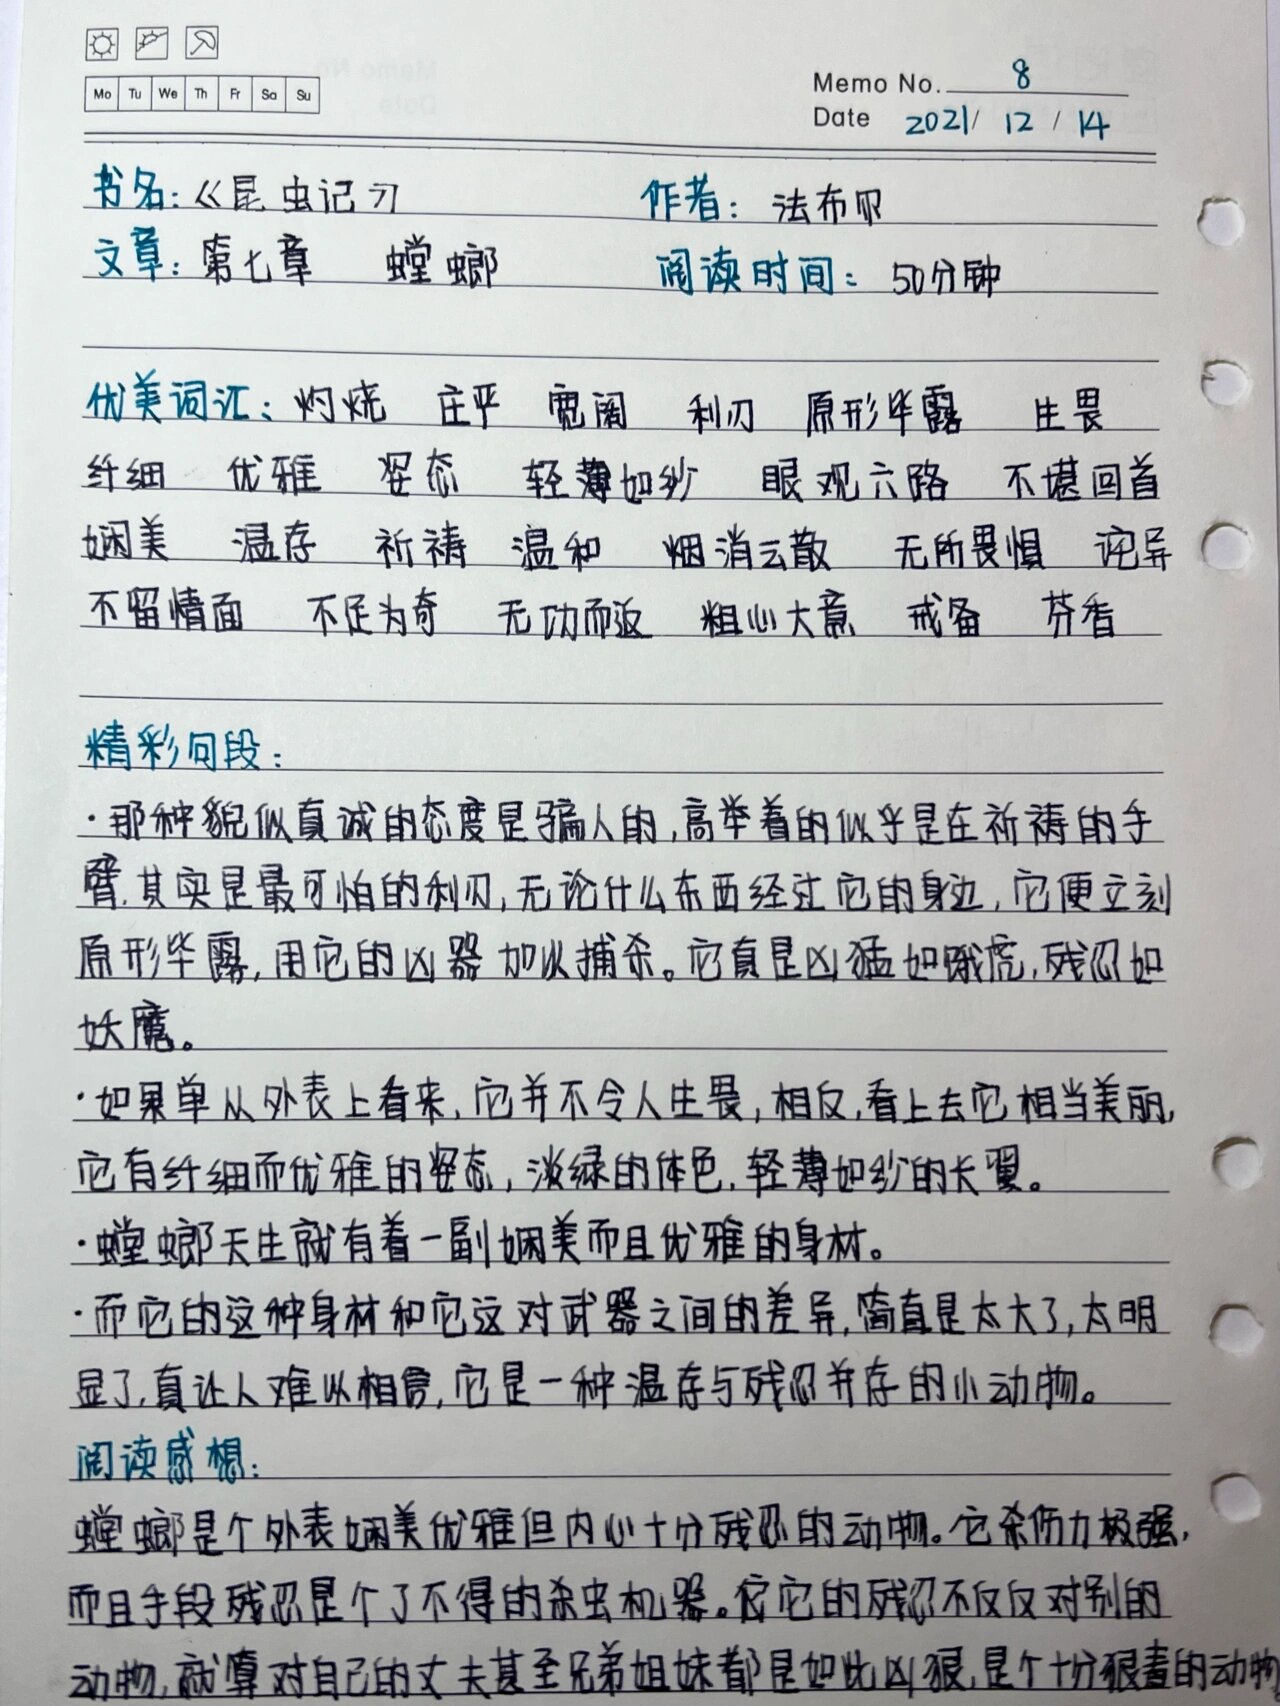 Mo Tu We Th Fr Sa Su
Memo No. 8
Date 2021/ 12 / 14
书名:《昆虫记》 作者: 法布尔
文章: 第七章 螳螂 阅读时间: 50分钟
优美词汇: 灼烧 庄严 宽阔 利刃 原形毕露 生畏
纤细 优雅 姿态 轻薄如纱 眼观六路 不堪回首
娴美 温存 祈祷 温和 烟消云散 无所畏惧 诧异
不留情面 不足为奇 无功而返 粗心大意 戒备 芬香
精彩句段:
·那种貌似真诚的态度是骗人的,高举着的似乎是在祈祷的手
臂,其实是最可怕的利刃,无论什么东西经过它的身边,它便立刻
原形毕露,用它的凶器加以捕杀。它真是凶猛如饿虎,残忍如
妖魔。
·如果单从外表上看来,它并不令人生畏,相反,看上去它相当美丽,
它有纤细而优雅的姿态,淡绿的体色,轻薄如纱的长翼。
·螳螂天生就有着一副娴美而且优雅的身材。
·而它的这种身材和它这对武器之间的差异,简直是太大了,太明
显了,真让人难以相信,它是一种温存与残忍并存的小动物。
阅读感想:
螳螂是个外表娴美优雅但内心十分残忍的动物。它杀伤力极强,
而且手段残忍是个了不得的杀虫机器。它的残忍不仅仅对别的
动物,就算对自己的丈夫甚至兄弟姐妹都是如此凶狠,是个十分狠毒的动物